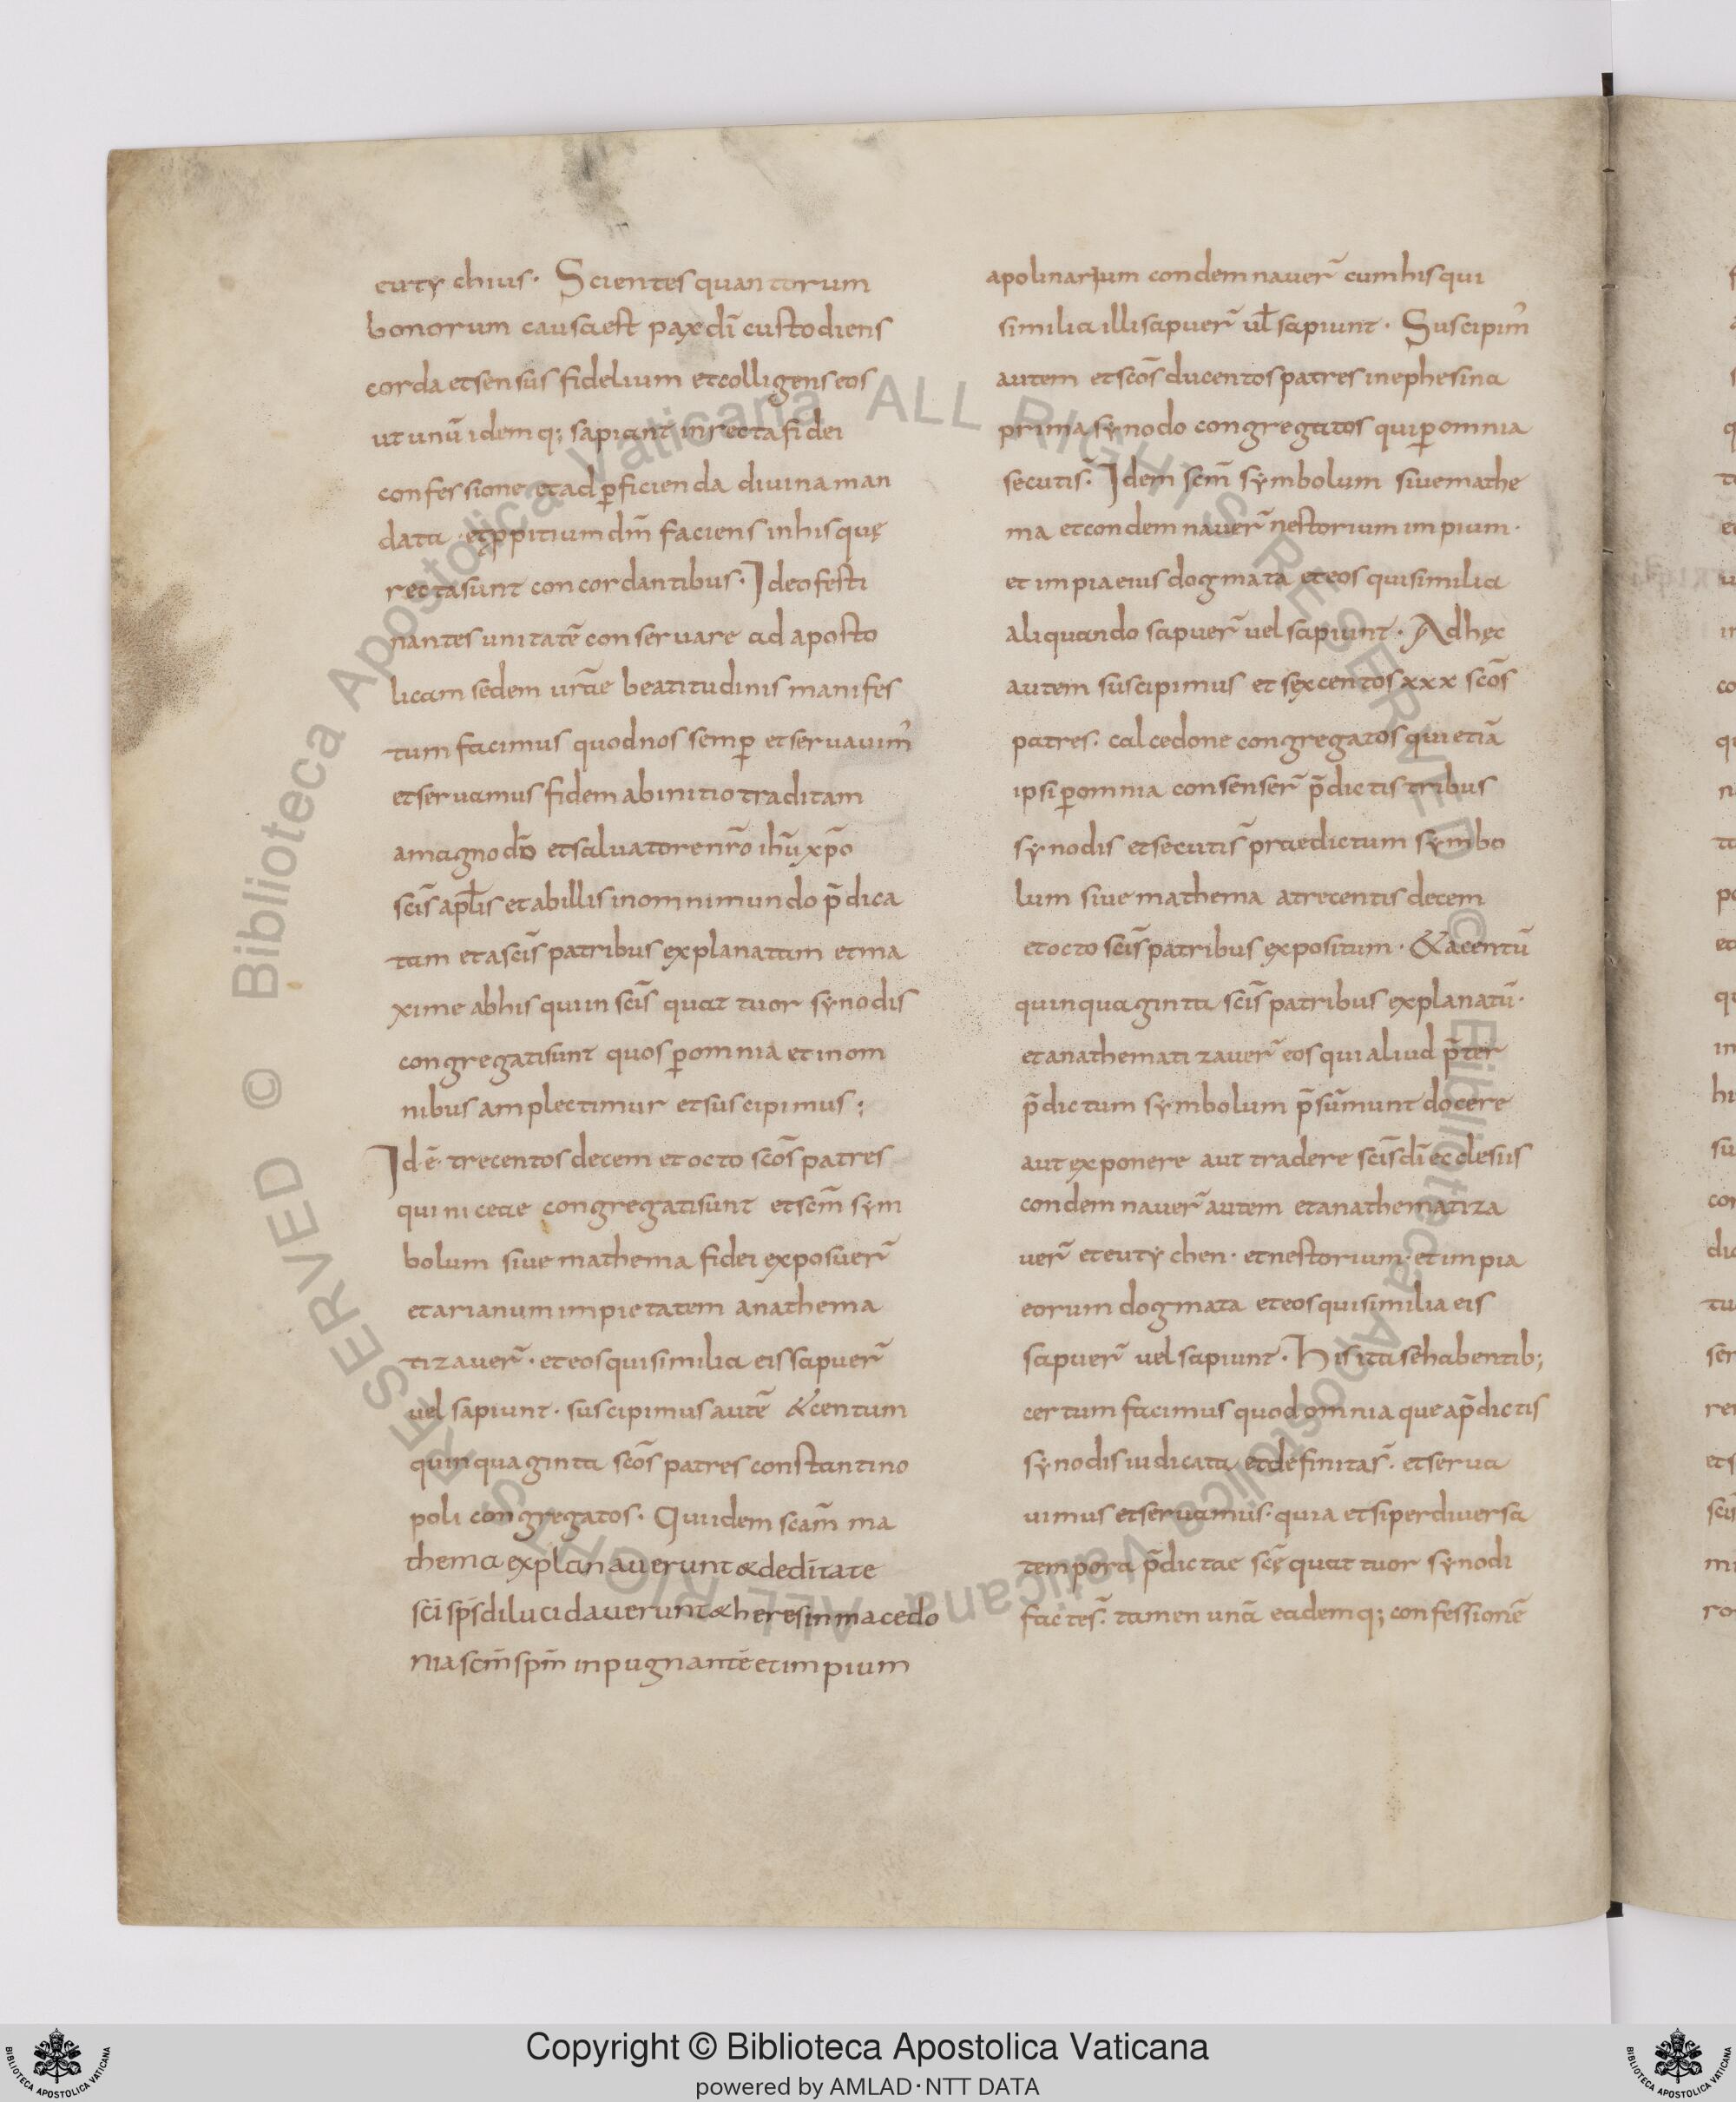 eutychius· Scientes quantorum
bonorum causa est pax dī custodiens
corda et sensus fidelium et colligens eos
ut unū idemq; sapiant in recta fidei
confessione et ad ꝑficienda diuina man
data· et ꝓpitium dm̄ faciens in his quę
recta sunt concordantibus· Ideo festi
nantes unitatē conseruare ad aposto
licam sedem urāe beatitudinis manifes
tum facimus quod nos semꝑ et seruauim᾿
et seruamus fidem ab initio traditam
a magno dō et saluatore nr̄o ihū xp̄o
scīs apl̄is et ab illis in omni mundo p̄dica
tam et a scīs patribus explanatam et ma
xime ab his qui in scīs quattuor synodis
congregati sunt quos ꝑ omnia et in om
nibus amplectimur et suscipimus;
Id·ē· trecentos decem et octo scōs patres
qui niceae congregati sunt et scm̄ sym
bolum siue mathema fidei exposuer̄
et arianum impietatem anathema
tizauer̄· et eos qui similia eis sapuer̄
uel sapiunt· suscipimus autē & centum
quinquaginta scōs patres constantino
poli congregatos· Qui idem scam̄ ma
thema explanauerunt & de deitate
scī sp̄s dilucidauerunt & heresin macedo
nia scm̄ spm̄ inpugnantē et impium
apolinarium condemnauer̄ cum his qui
similia illi sapuer̄ ul̄ sapiunt· Suscipim᾿
autem et scōs ducentos patres in ephesina
prima synodo congregatos qui ꝑ omnia
secuti s̄· Idem scm̄ symbolum siue mathe
ma et condemnauer̄ nestorium impium·
et impia eius dogmata et eos qui similia
aliquando sapuer̄ uel sapiunt· Ad hęc
autem suscipimus et sexcentos xxx scōs
patres· calcedone congregatos qui etiā
ipsi ꝑ omnia consenser̄ p̄dictis tribus
synodis et secuti s̄ praedictum symbo
lum siue mathema a trecentis decem
et octo scīs patribus expositum· & a centū
quinquaginta scīs patribus explanatū·
et anathematizauer̄ eos qui aliud p̄ter
p̄dictum symbolum p̄sumunt docere
aut exponere aut tradere scīs dī ecclesiis
condemnauer̄ autem et anathematiza
uer̄ et eutychen· et nestorium· et impia
eorum dogmata et eos qui similia eis
sapuer̄ uel sapiunt· His ita se habentib;
certum facimus quod omnia que a p̄dictis
synodis iudicata et definita s̄· et serua
uimus et seruamus· quia et si per diuersa
tempora p̄dictae scę quattuor synodi
factę s̄· tamen unā eademq; confessionē
Copyright © Biblioteca Apostolica Vaticana
powered by AMLAD·NTT DATA